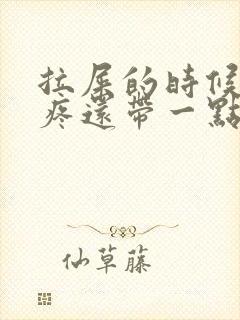 拉屎的時候
疼還帶一點
仙草藤